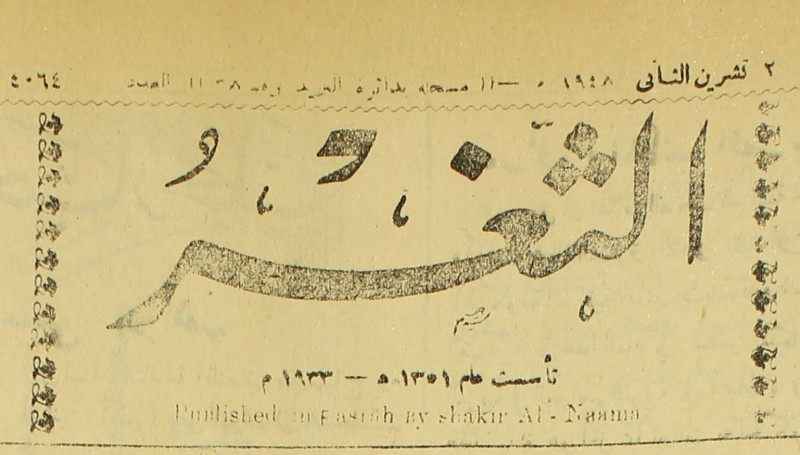 ٢ تشرين الثاني ١٩٤٨ مسجلة بدائرة البريد العدد ٤٠٦٤
الثغر
تأسست عام ١٣٥١ه — ١٩٣٣ م
Published in Basrah by Shakir Al-Naama